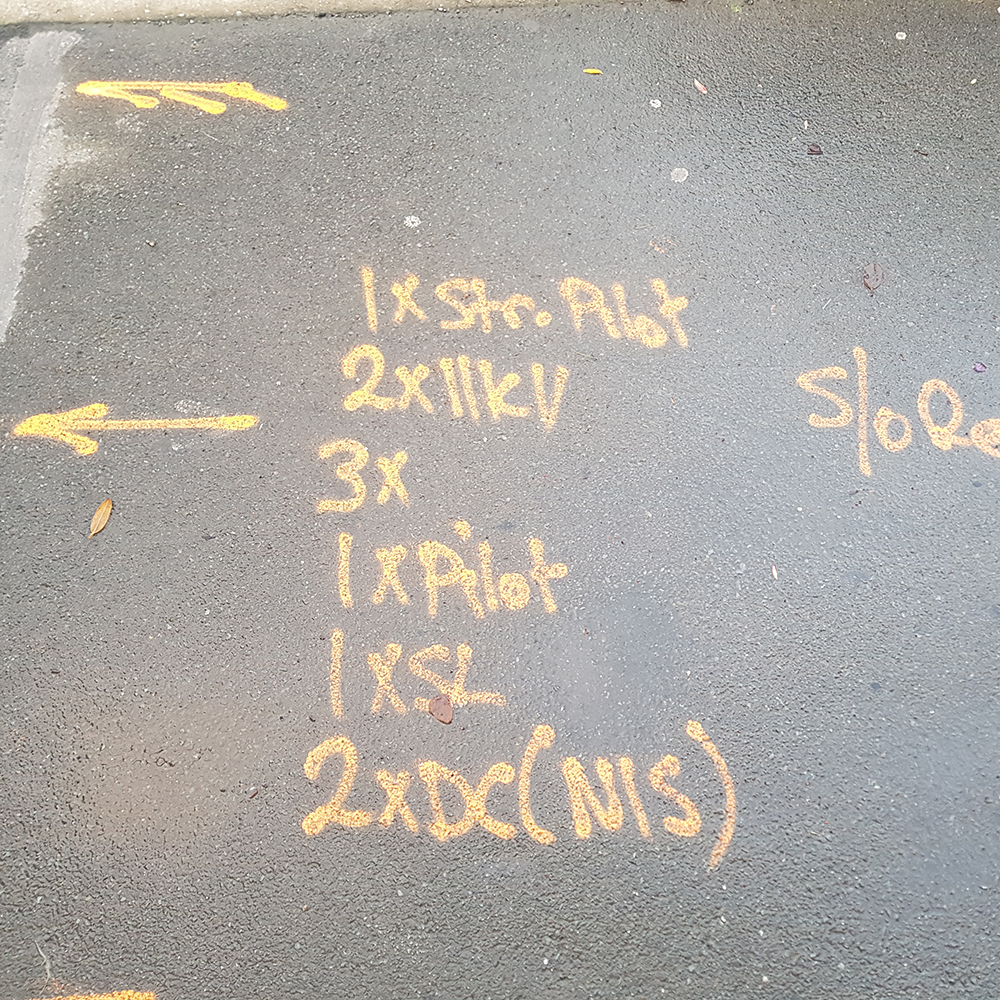 1x Str. Pilot
2x11KV
3x
1xPilot
1xSL
2xDC(NIS)
S/o